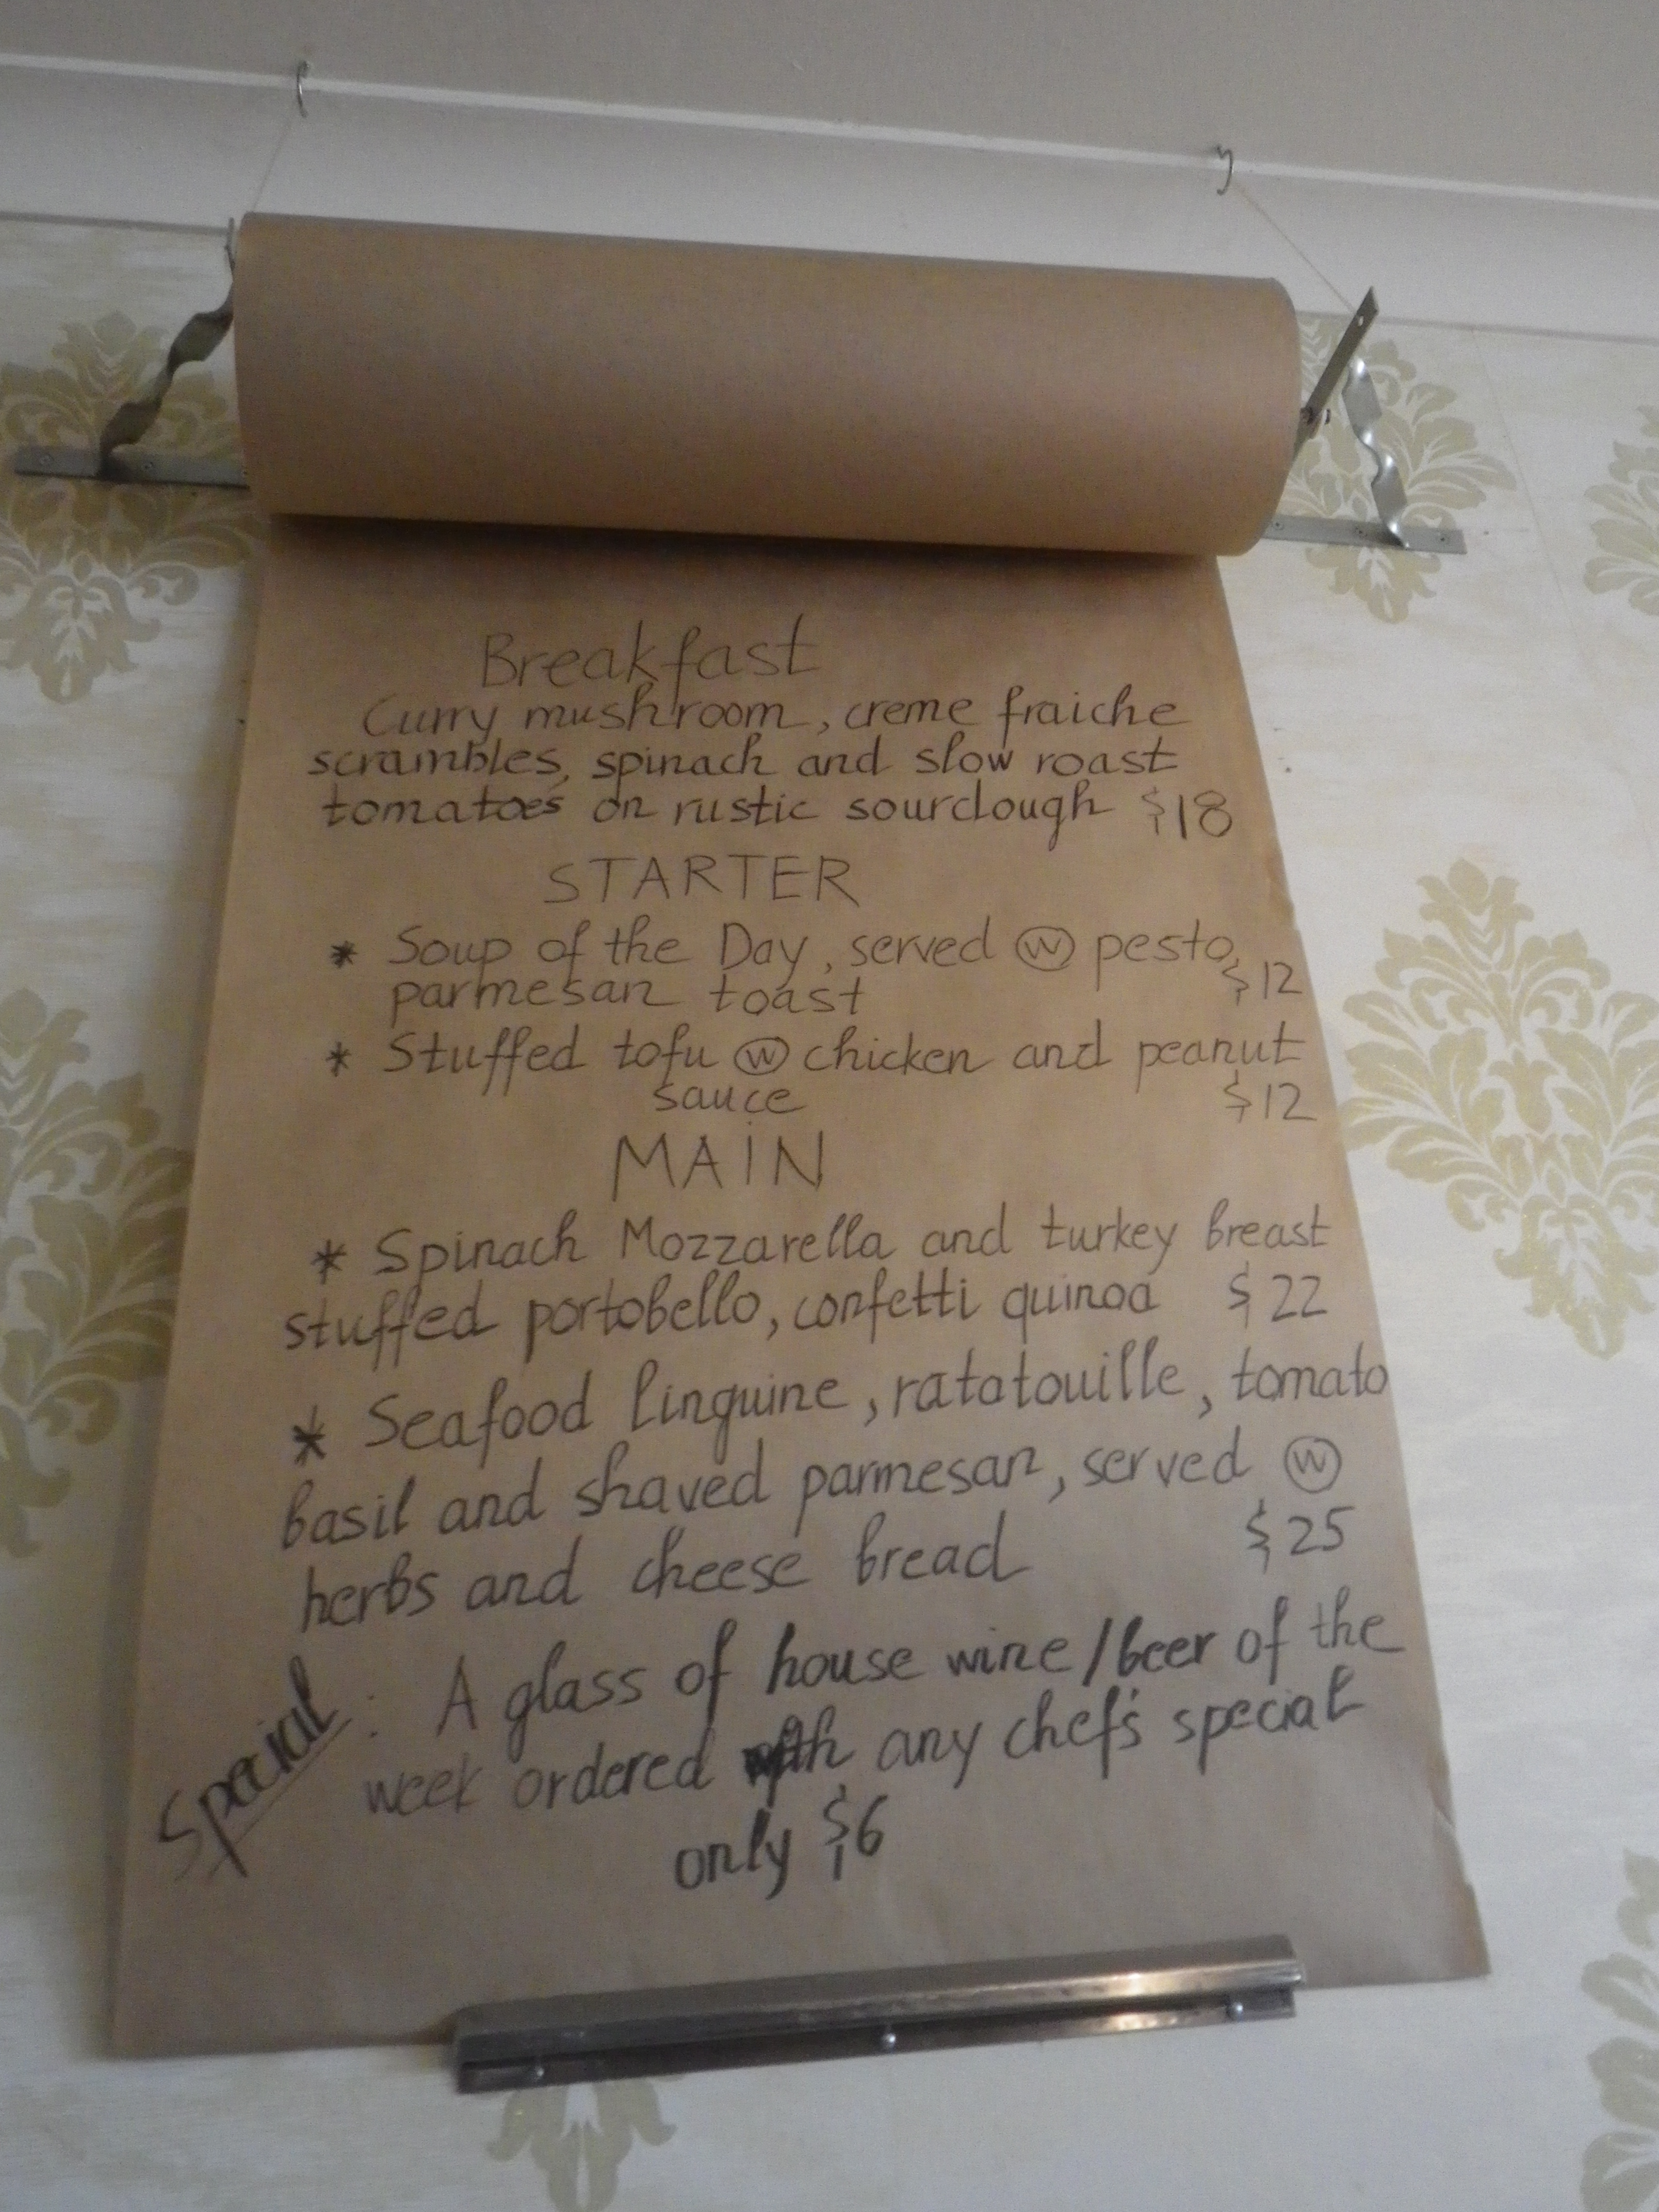 Breakfast
Curry mushroom, creme fraiche
scrambles, spinach and slow roast
tomatoes on rustic sourdough $18
STARTER
* Soup of the Day, served ⓦ pesto,
parmesan toast $12
* Stuffed tofu ⓦ chicken and peanut
sauce $12
MAIN
* Spinach Mozzarella and turkey breast
stuffed portobello, confetti quinoa $22
* Seafood linguine, ratatouille, tomato
basil and shaved parmesan, served ⓦ
herbs and cheese bread $25
Special: A glass of house wine/beer of the
week ordered with any chef's special
only $6